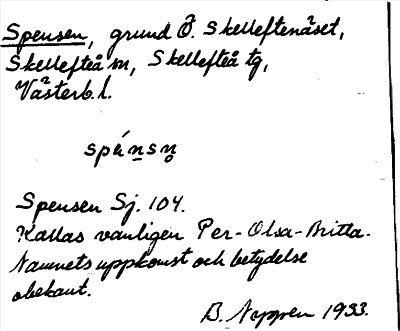 Spensen, grund Ö. Skelleftenäset,
Skellefteå sn, Skellefteå tg,
Västerb. l.
spánsn̥
Spensen Sj. 104.
Kallas vanligen Per-Olsa-Britta.
Namnets uppkomst och betydelse
obekant.
B. Nygren 1933.